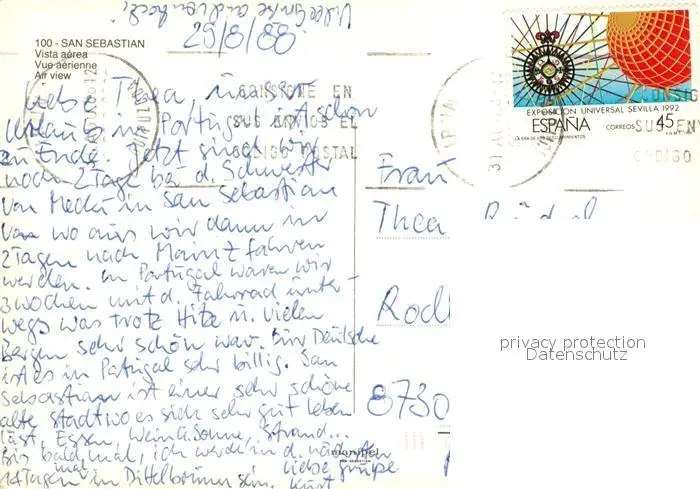 29/8/88
100 - SAN SEBASTIAN
Vista aérea
Vue aérienne
Air view
CONSIGNE EN
SUS ENVIOS EL
CODIGO POSTAL
EXPOSICION UNIVERSAL SEVILLA 1992
ESPAÑA CORREOS 45
LA ERA DE LOS DESCUBRIMIENTOS
CONSIG
SUS ENV
CODIGO
Liebe Thea, unser
Urlaub in Portugal ist schon
zu Ende. Jetzt sind wir
noch 2 Tage bei d. Schwester
von in San Sebastian
von wo aus wir dann in
2 Tagen nach Mainz fahren
werden. In Portugal waren wir
3 Wochen mit d. Fahrrad unter-
wegs was trotz Hitze u. vielen
Bergen sehr schön war. Für Deutsche
ist es in Portugal sehr billig. San
Sebastian ist eine sehr schöne
alte Stadt wo es sich sehr gut leben
läst, Essen, Wein u. Sonne, Strand...
Bis bald mal, ich werde in d. nächsten
14 Tagen mal in Dittelbrunn sein. Liebe Grüße
Kurt
Frau
Thea
8730
manipel
SAN SEBASTIAN
privacy protection
Datenschutz